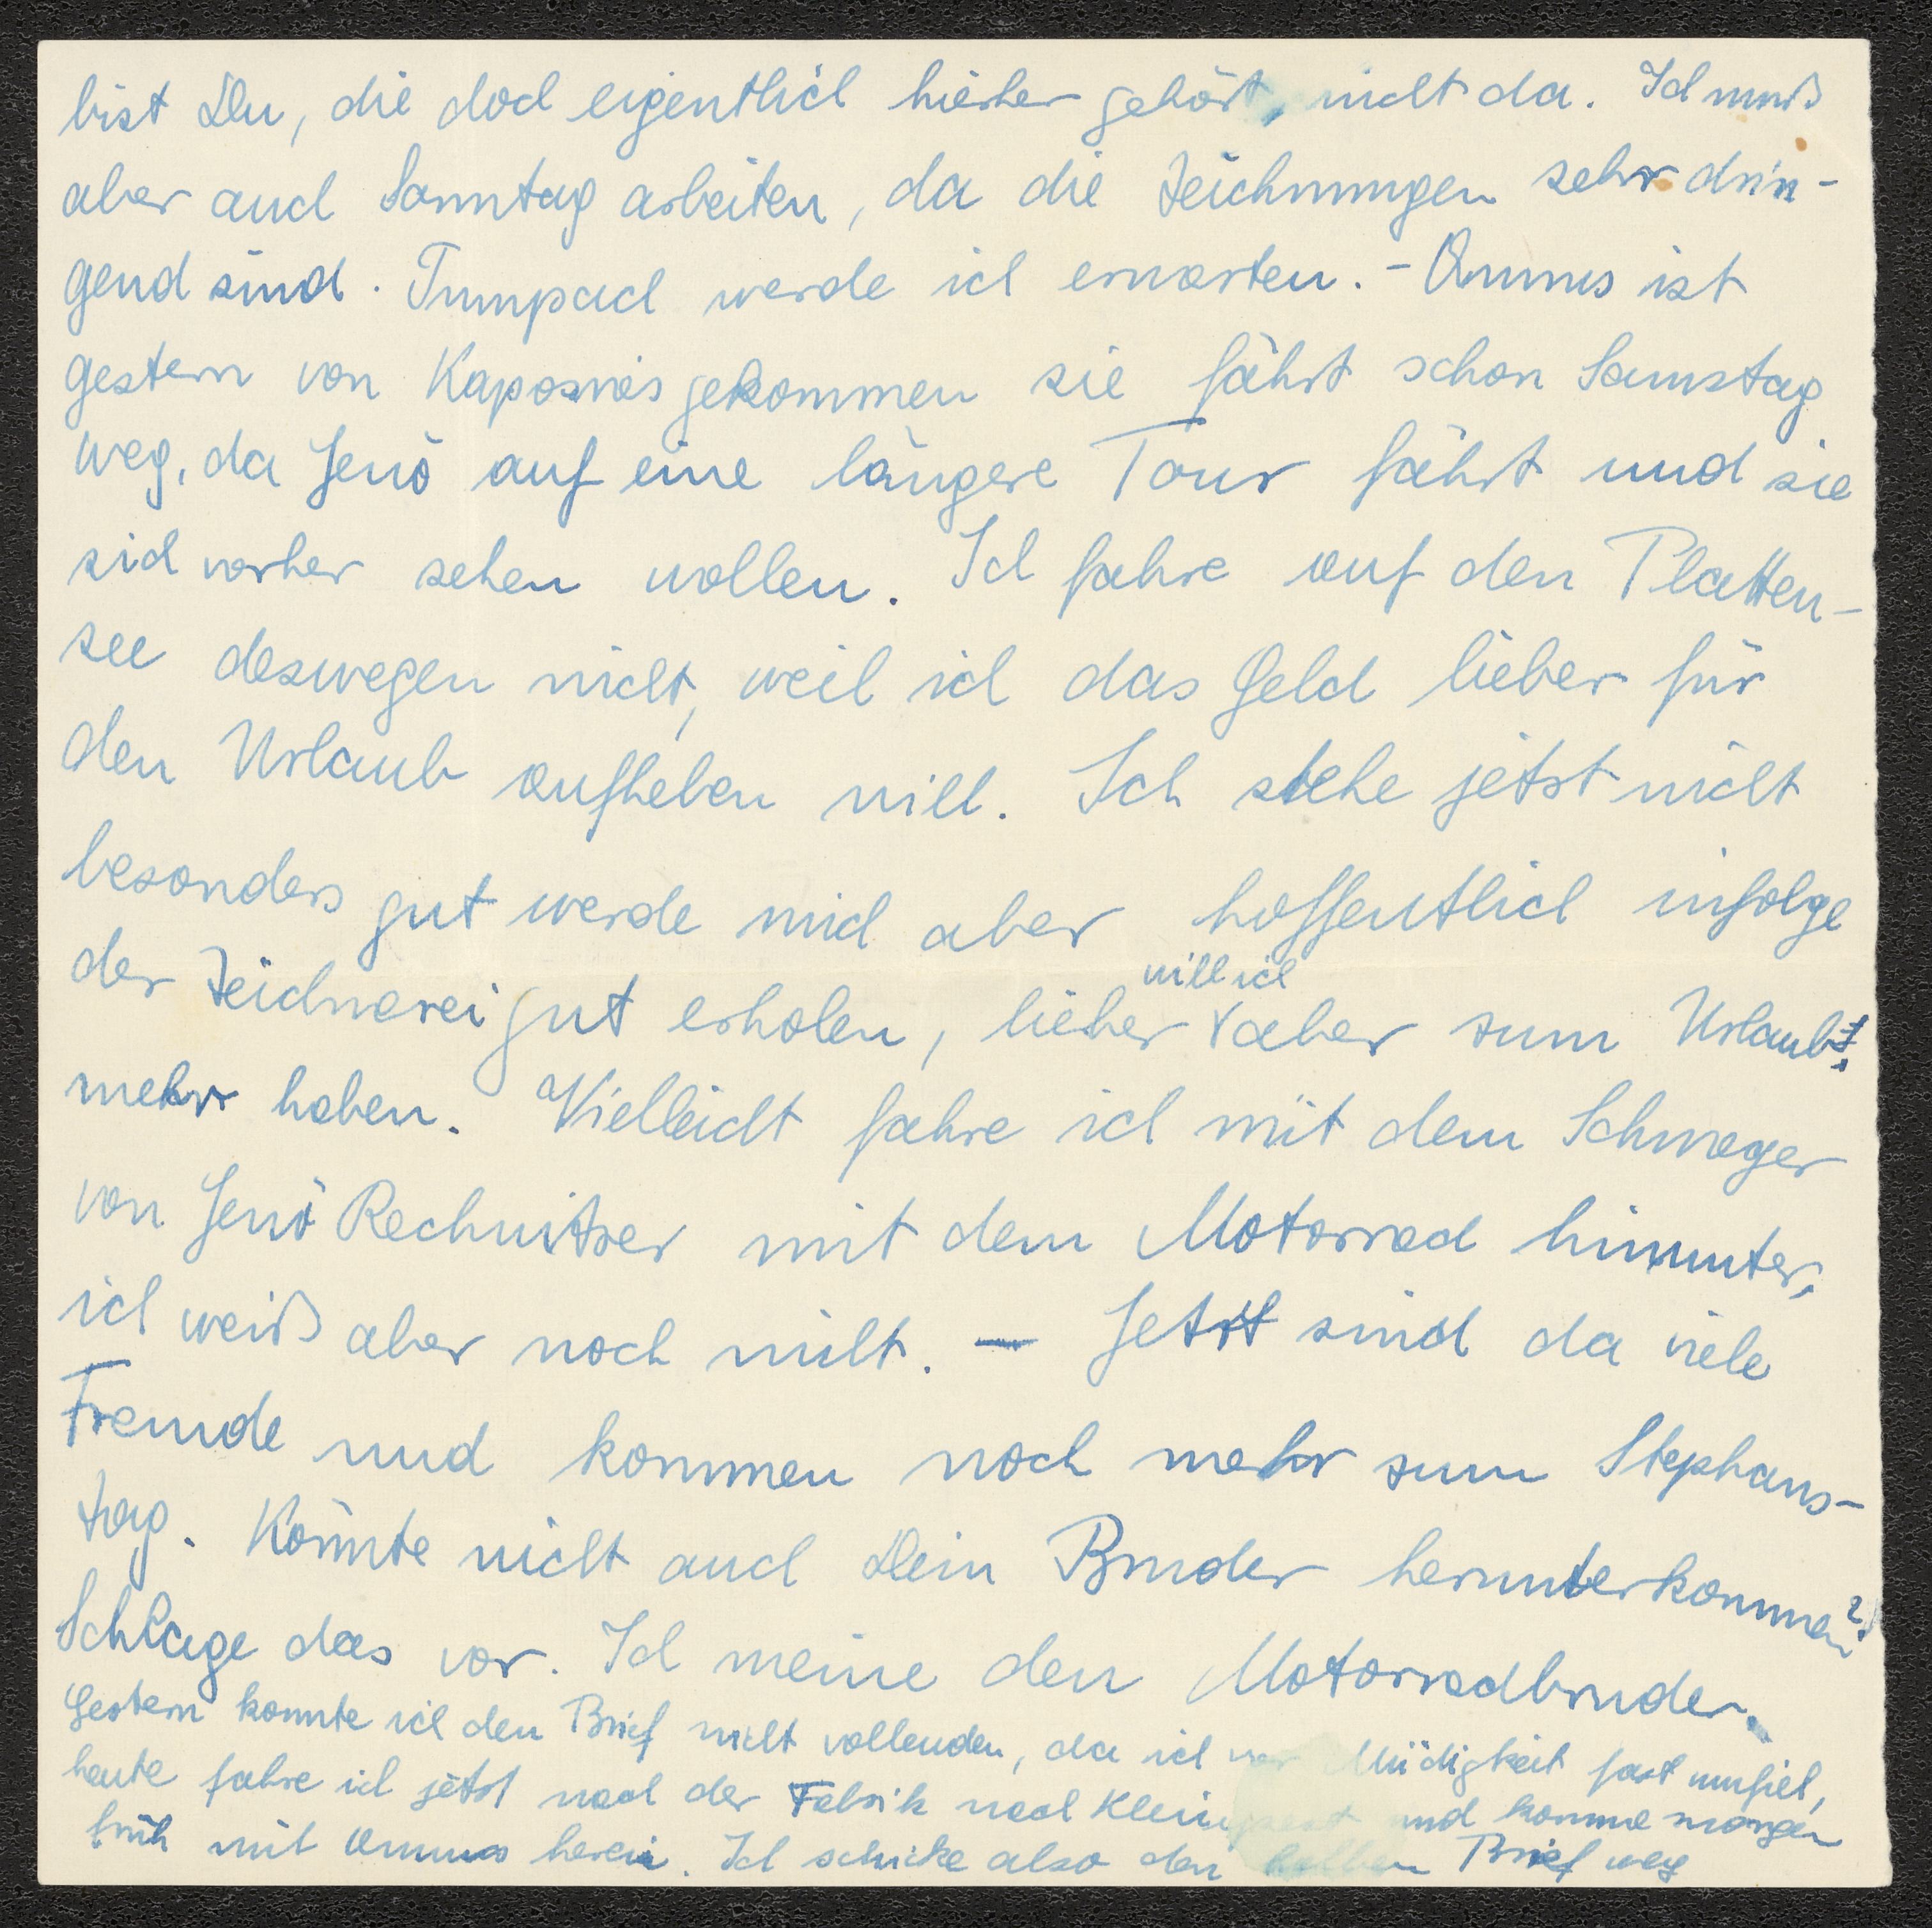 bist Du, die doch eigentlich hierher gehört, nicht da. Ich muß
aber auch Sonntag arbeiten, da die Zeichnungen sehr drin-
gend sind. werde ich erwarten. – Ommus ist
gestern von Kaposvár gekommen sie fährt schon Samstag
weg, da Jenö auf eine längere Tour fährt und sie
sich vorher sehen wollen. Ich fahre auf den Platten-
see deswegen nicht, weil ich das Geld lieber für
den Urlaub aufheben will. Ich stehe jetzt nicht
besonders gut werde mich aber hoffentlich infolge
der Zeichnerei gut erholen, lieber will ich aber zum Urlaub
mehr haben. Vielleicht fahre ich mit dem Schwager
von Jenö Rechnitzer mit dem Motorrad hinunter,
ich weiß aber noch nicht. – Jetzt sind da viele
Fremde und kommen noch mehr zum Stephans-
tag. Könnte nicht auch Dein Bruder herunterkommen?
Schlage das vor. Ich meine den Motorradbruder.
Gestern konnte ich den Brief nicht vollenden, da ich vor Müdigkeit fast umfiel,
heute fahre ich jetzt nach der Fabrik nach Kleinpest und komme morgen
früh mit Ommus herein. Ich schicke also den halben Brief weg